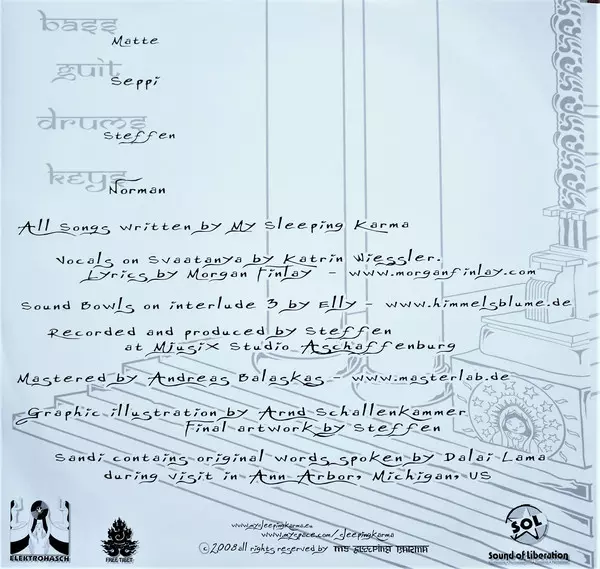 BASS
Matte
GUIT
Seppi
DRUMS
Steffen
KEYS
Norman
All Songs written by My Sleeping Karma
Vocals on Svaatanya by Katrin Wiessler.
Lyrics by Morgan Finlay - www.morganfinlay.com
Sound Bowls on interlude 3 by Elly - www.himmelsblume.de
Recorded and produced by Steffen
at Miusix Studio Aschaffenburg
Mastered by Andreas Balaskas - www.masterlab.de
Graphic illustration by Arnd Schallenkammer
Final artwork by Steffen
Sandi contains original words spoken by Dalai Lama
during visit in Ann Arbor, Michigan, US
www.mysleepingkarma.eu
www.myspace.com/sleepingkarma
©2008 all rights reserved by MY SLEEPING KARMA
ELEKTROHASCH
FREE TIBET
SOL
Sound of Liberation